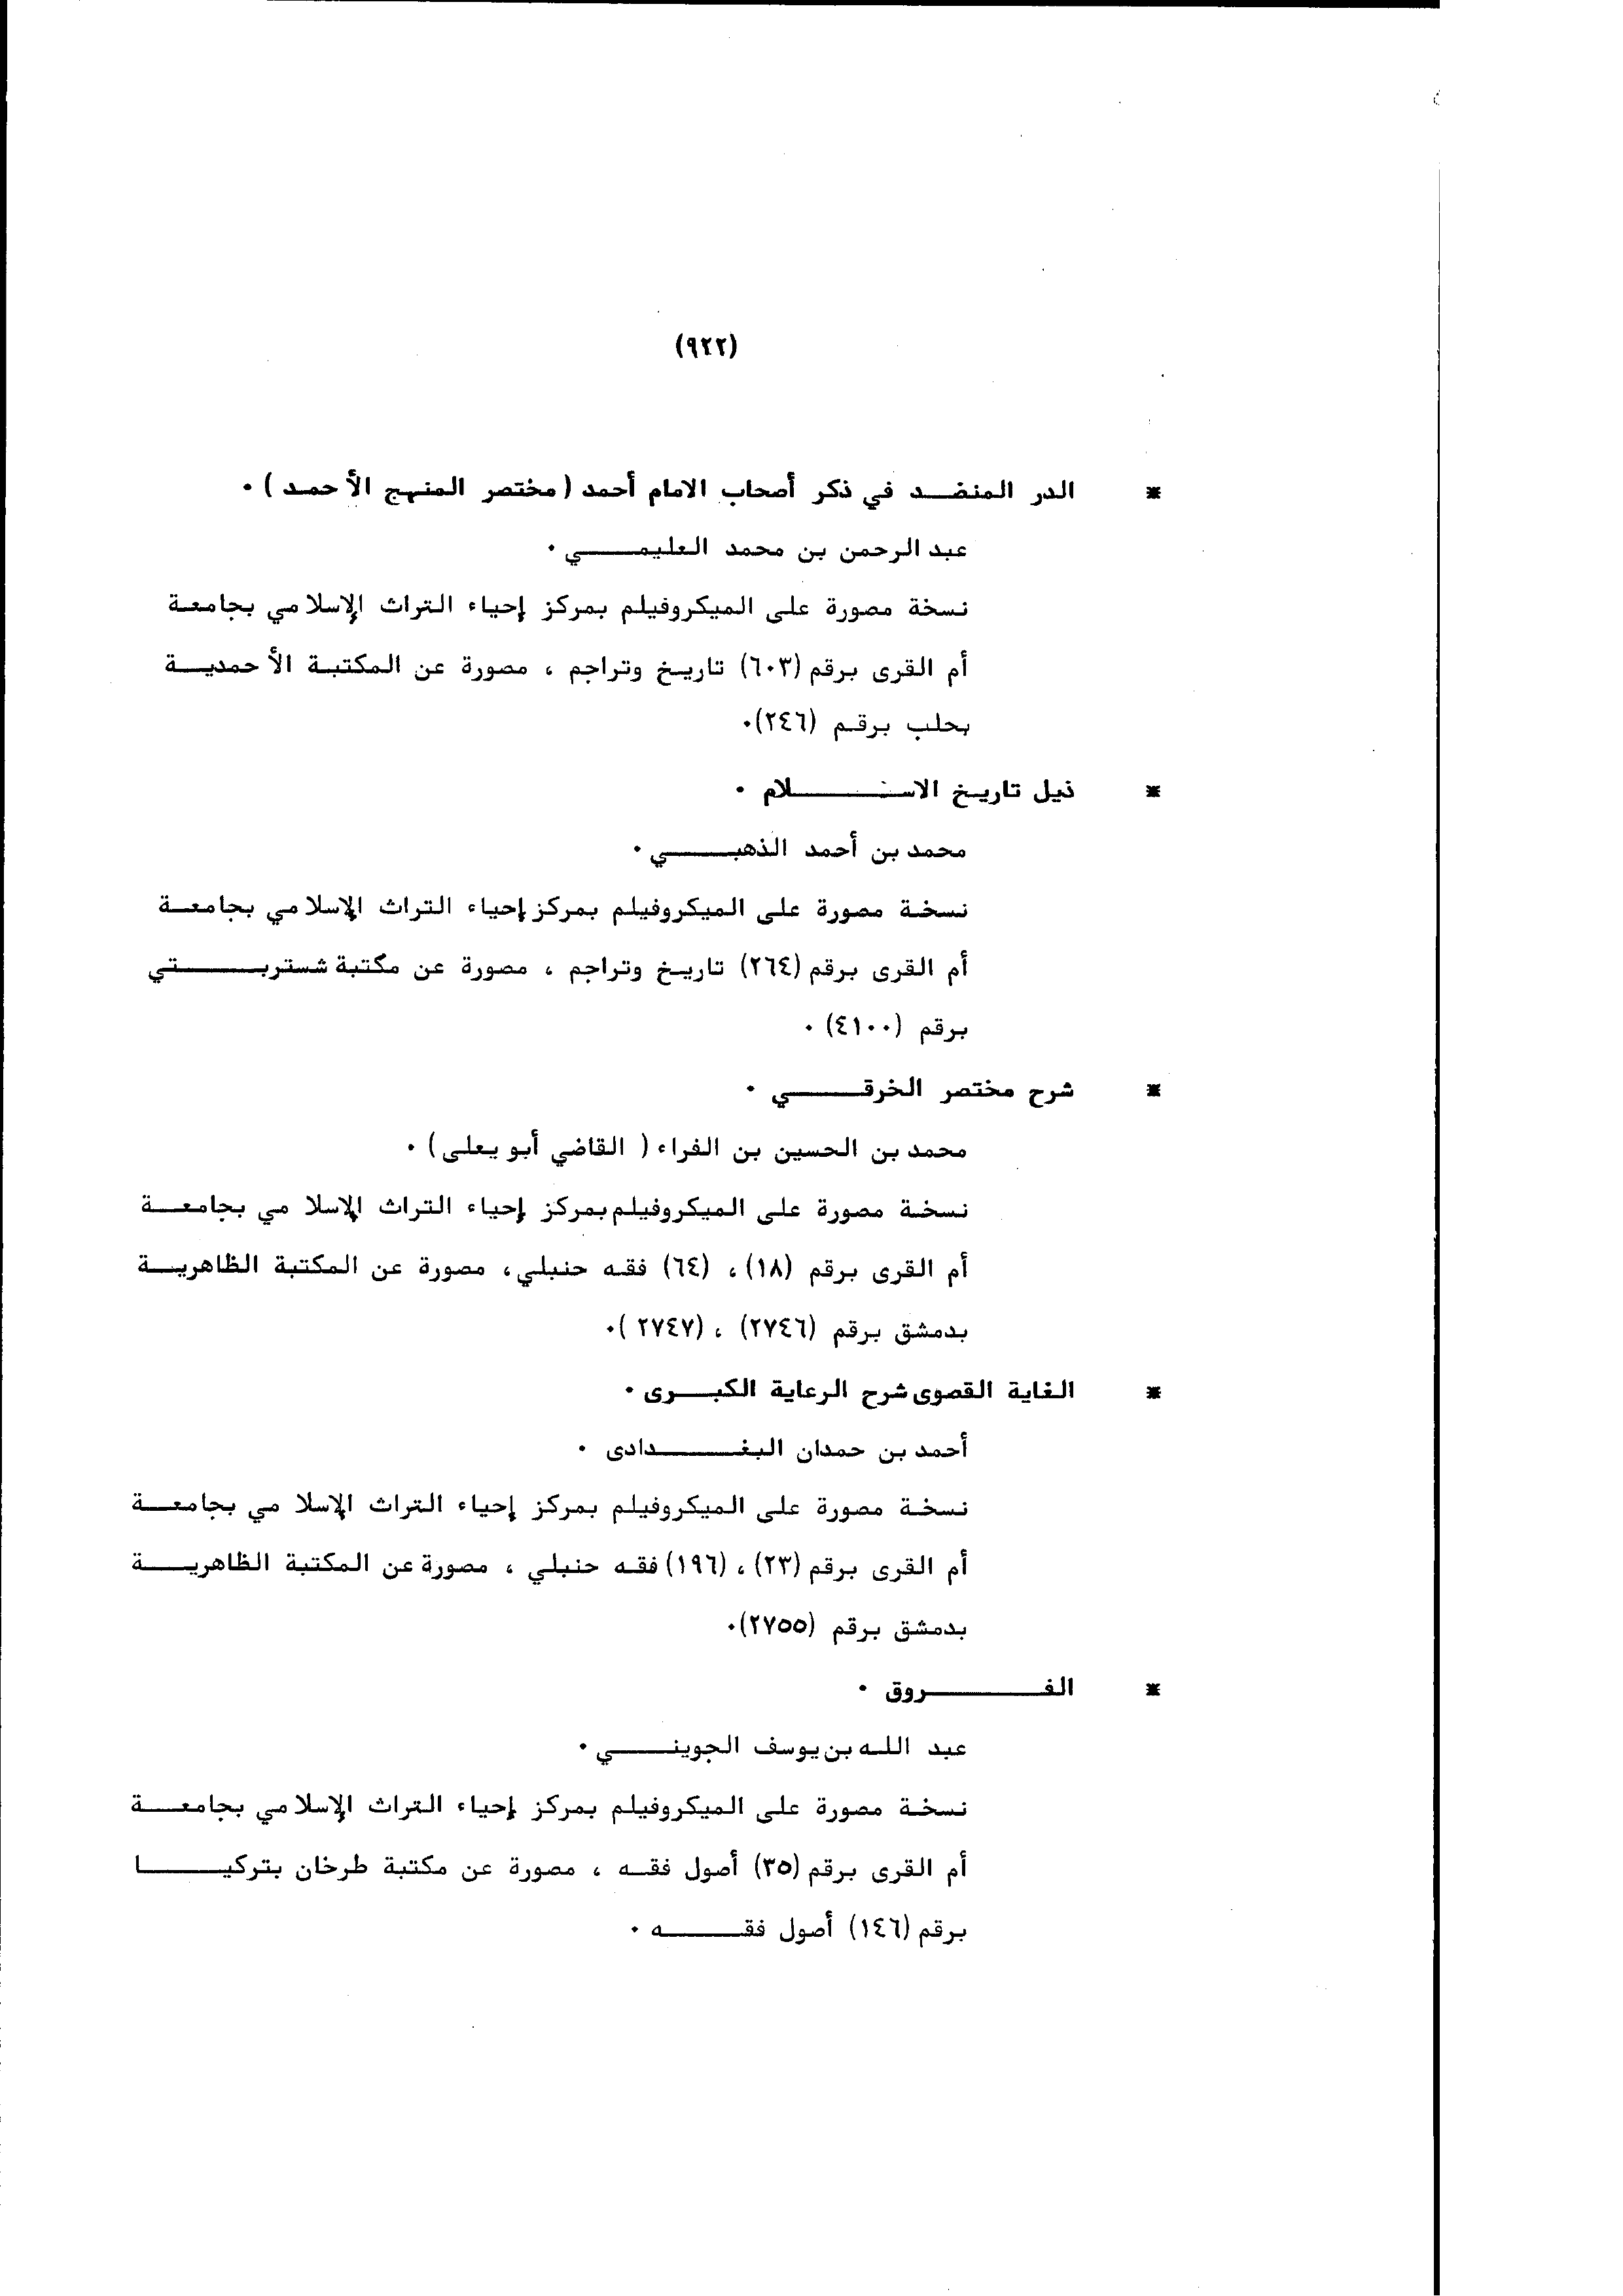 (٩٢٢)
* الدر المنضد في ذكر أصحاب الامام أحمد (مختصر المنهج الأحمد) ٠
عبد الرحمن بن محمد العليمي ٠
نسخة مصورة على الميكروفيلم بمركز إحياء التراث الإسلامي بجامعة
أم القرى برقم (٦٠٣) تاريخ وتراجم ، مصورة عن المكتبة الأحمدية
بحلب برقم (٢٤٦)٠
* ذيل تاريخ الاسلام ٠
محمد بن أحمد الذهبي ٠
نسخة مصورة على الميكروفيلم بمركز إحياء التراث الإسلامي بجامعة
أم القرى برقم (٢٦٤) تاريخ وتراجم ، مصورة عن مكتبة شستربتي
برقم (٤١٠٠) ٠
* شرح مختصر الخرقي ٠
محمد بن الحسين بن الفراء ( القاضي أبو يعلى) ٠
نسخة مصورة على الميكروفيلم بمركز إحياء التراث الإسلامي بجامعة
أم القرى برقم (١٨) ، (٦٤) فقه حنبلي، مصورة عن المكتبة الظاهرية
بدمشق برقم (٢٧٤٦) ، (٢٧٤٧ )٠
* الغاية القصوى شرح الرعاية الكبرى ٠
أحمد بن حمدان البغدادى ٠
نسخة مصورة على الميكروفيلم بمركز إحياء التراث الإسلامي بجامعة
أم القرى برقم (٢٣) ، (١٩٦) فقه حنبلي ، مصورة عن المكتبة الظاهرية
بدمشق برقم (٢٧٥٥)٠
* الفروق ٠
عبد الله بن يوسف الجويني ٠
نسخة مصورة على الميكروفيلم بمركز إحياء التراث الإسلامي بجامعة
أم القرى برقم (٣٥) أصول فقه ، مصورة عن مكتبة طرخان بتركيا
برقم (١٤٦) أصول فقه ٠